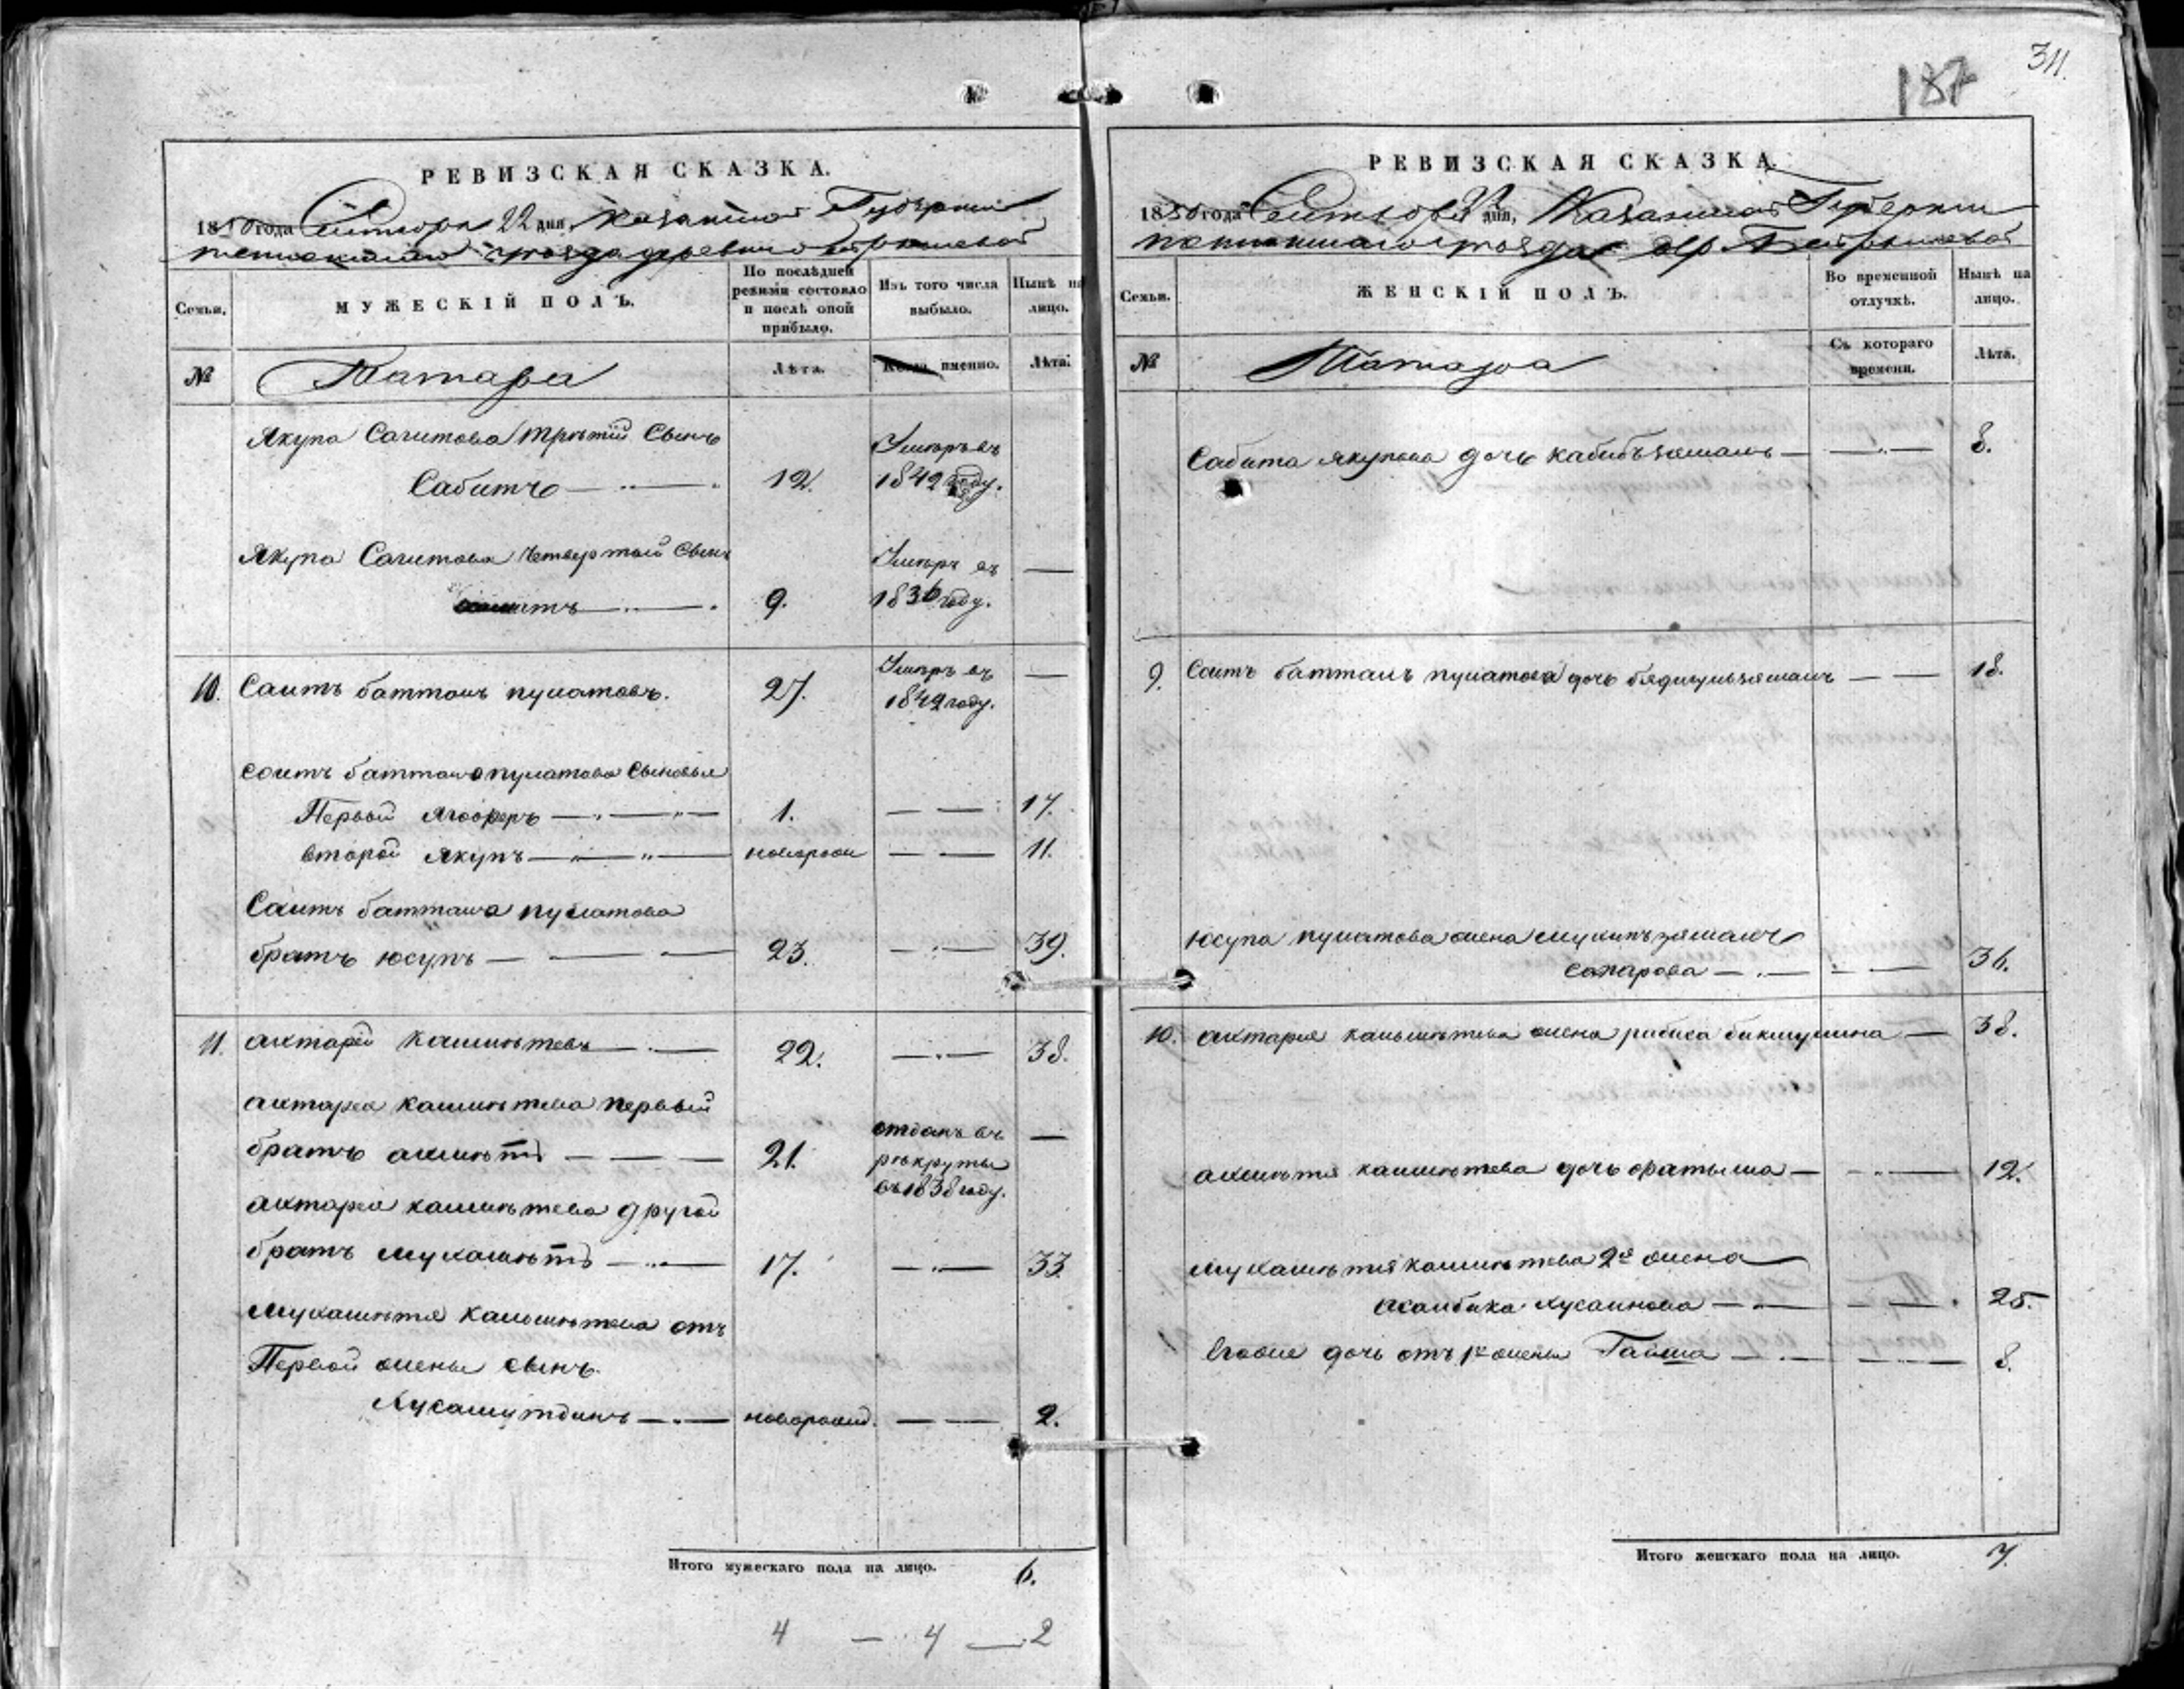 311.
187
РЕВИЗСКАЯ СКАЗКА.
1850 года Октября 22 дня, Казанской Губернии
уезда деревни
Семьи.
МУЖЕСКІЙ ПОЛЪ.
По послѣдней ревизіи состояло и послѣ оной прибыло.
Изъ того числа выбыло.
Нынѣ на лицо.
№
Татара
Лѣта.
Когда именно.
Лѣта.
Якупа Сагитова третій Сынъ
Сабитъ 12. Умеръ въ 1842 году.
Якупа Сагитова Четвертой Сынъ
9. Умеръ въ 1836 году. —
10. Саитъ баттолъ пулатовъ. 27. Умеръ въ 1842 году. —
Саитъ баттола пулатова Сыновья
Первой Ягоферъ 1. — — 17.
Второй Якупъ — — новорожд — — 11.
Саитъ баттала пулатова
братъ Юсупъ — — — 23. — — 39.
11. Ахтарей Калметевъ — 22. — — 38.
Ахтарея Калметева первый
братъ Ахметъ — — — 21. отданъ въ рекруты въ 1838 году. —
Ахтарея Калметева другой
братъ Мухаметъ — 17. — — 33
Мухаметя Калметева отъ
Первой жены сынъ.
Хусамутдинъ — — новорожд. — — 2.
Итого мужескаго пола на лицо. 6.
4 — 4 — 2
РЕВИЗСКАЯ СКАЗКА.
1850 года Октября 22 дня, Казанской Губернии
уезда дер.
Семьи.
ЖЕНСКІЙ ПОЛЪ.
Во временной отлучкѣ.
Нынѣ на лицо.
№
Татара
Съ котораго времени.
Лѣта.
Сабита Якупова дочь Кабибъзямалъ — — — 8.
9. Саитъ батталъ пулатова дочь бядигульзямалъ — — 18.
Юсупа пулатова жена
Сапарова — — — — 36.
10. Ахтарея Калметева жена рабига бикмулина — 38.
Ахметя Калметева дочь Фатыма — — — 12.
Мухаметя Калметева 2я жена
Хусаинова — — — 25.
Его же дочь отъ 1й жены Гайша — — — 8.
Итого женскаго пола на лицо. 7.